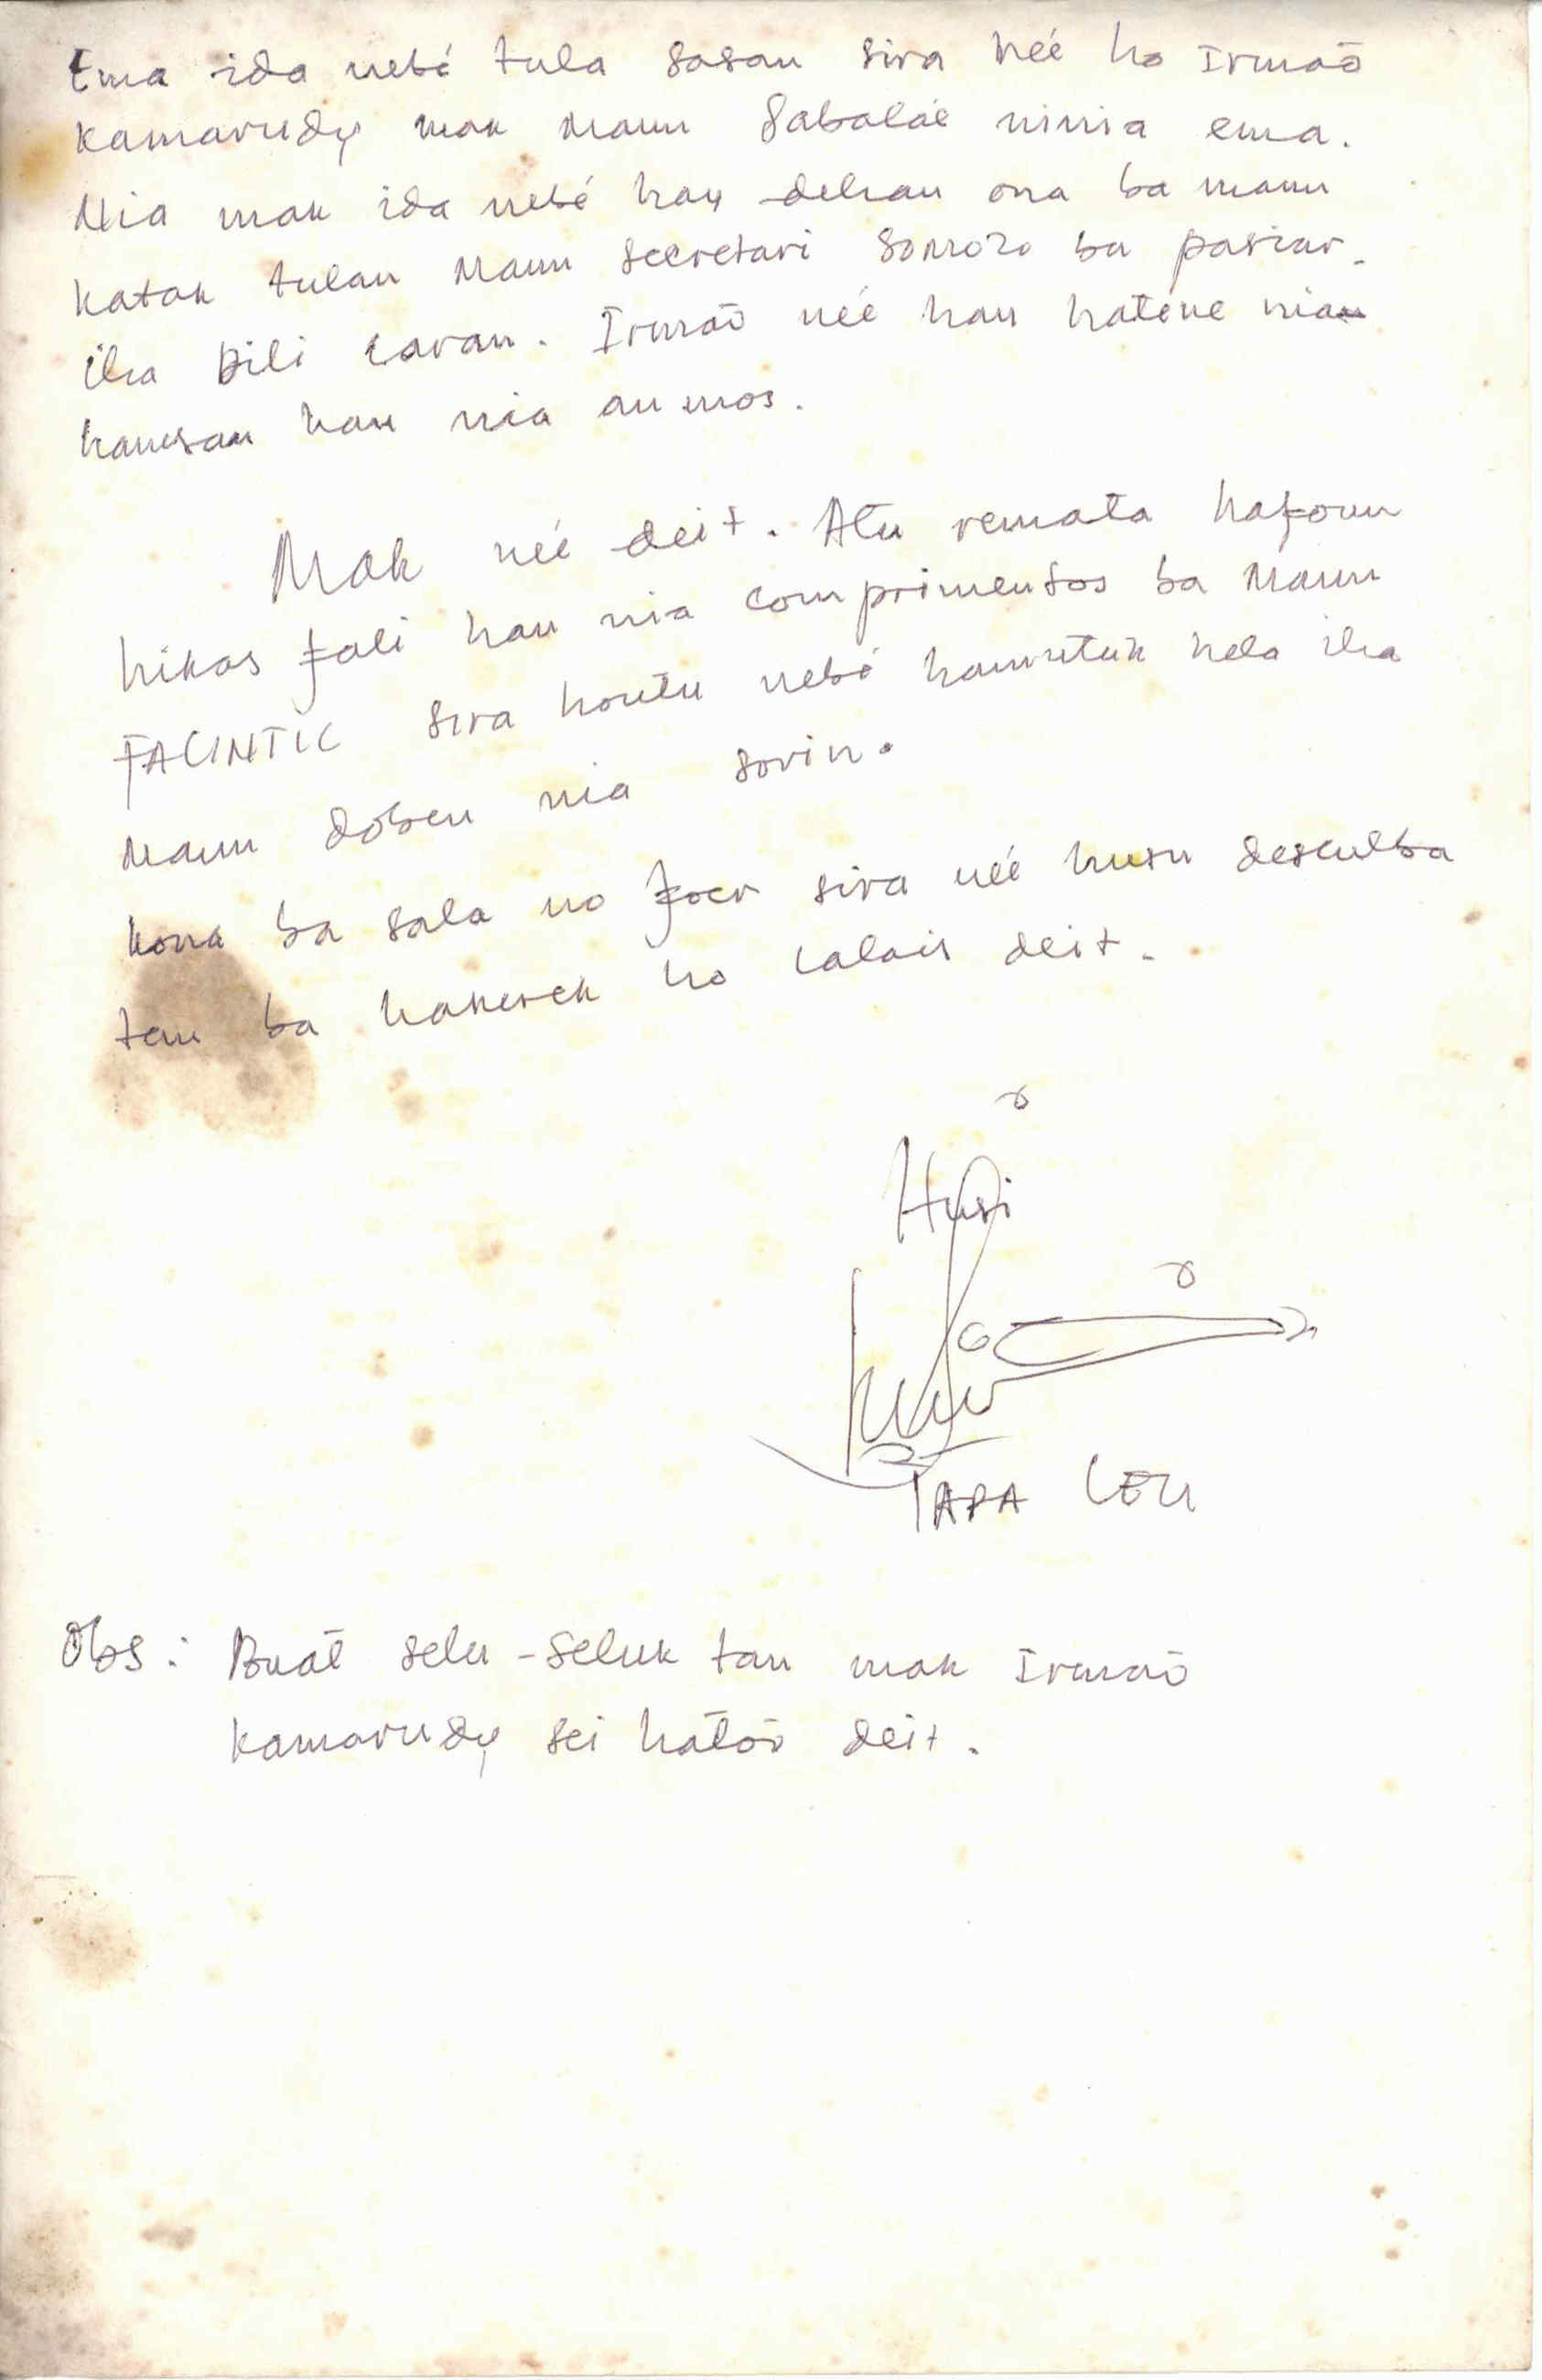 Ema ida nebé tula sasan sira néé ho Irmaõ
kamarudy mak Maun Sabalaé ninia ema.
Nia mak ida nebé hau dehan ona ba maun
katak tulan Maun secretari Somoro ba pasiar
iha Dili laran. Irmaõ néé hau hatene nia
hanesan hau nia an mos.
Mak néé deit. Atu remata hafoun
hikas fali hau nia comprimentos ba Maun
FALINTIL sira houtu nebé hamutuk hela iha
Maun doben nia sorin.
kona ba sala no foer sira néé husu desculba
tan ba hakerek ho lalais deit.
Husi
PAPA LERU
Obs: Buat selu-seluk tan mak Irmaõ
kamarudy sei hatõo deit.